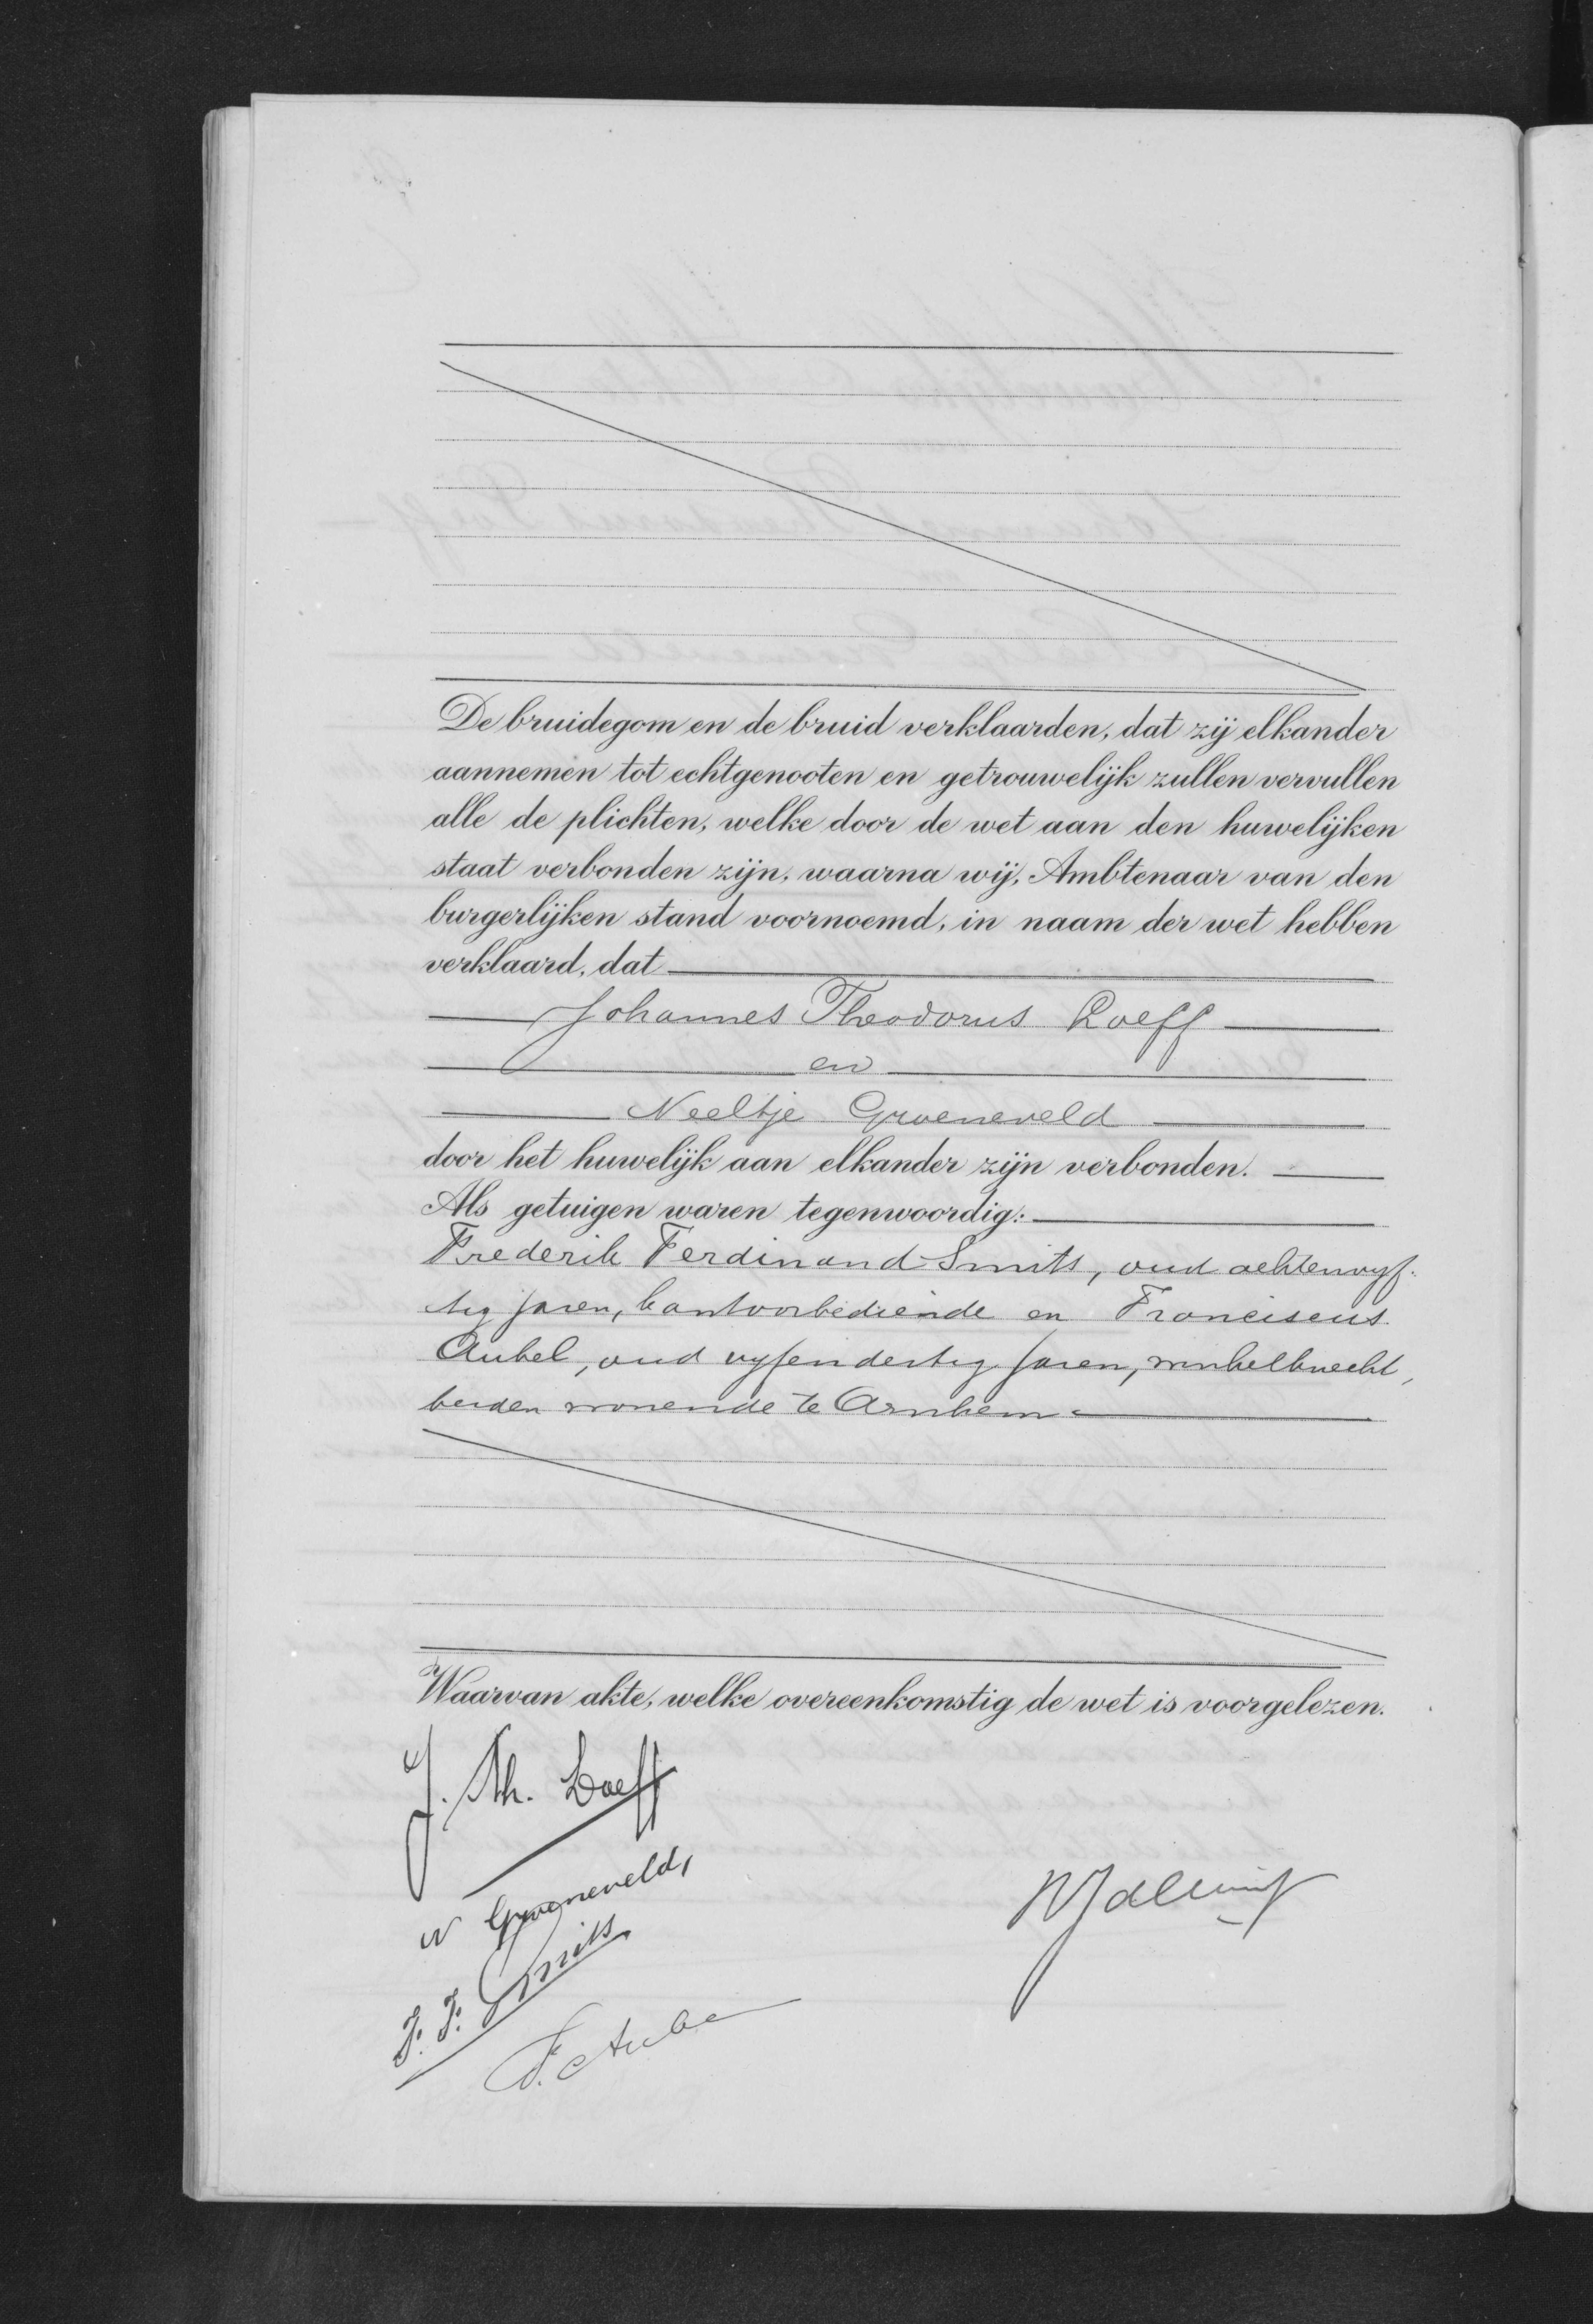 De bruidegom en de bruid verklaarden, dat zij elkander
aannemen tot echtgenooten en getrouwelijk zullen vervullen
alle de plichten, welke door de wet aan den huwelijken
staat verbonden zijn, waarna wij, Ambtenaar van den
burgerlijken stand voornoemd, in naam der wet hebben
verklaard, dat
Johannes Theodorus Loeff
en
Neeltje Groeneveld
door het huwelijk aan elkander zijn verbonden.
Als getuigen waren tegenwoordig:
Frederik Ferdinand Smits, oud achtenvyf-
tig jaren, kantoorbediende en Franciscus
Aubel, oud vyfendertig jaren, winkelknecht,
beiden wonende te Arnhem
Waarvan akte, welke overeenkomstig de wet is voorgelezen.
J. Th. Loeff
N Groeneveld,
F. F. Smits
F. Aubel